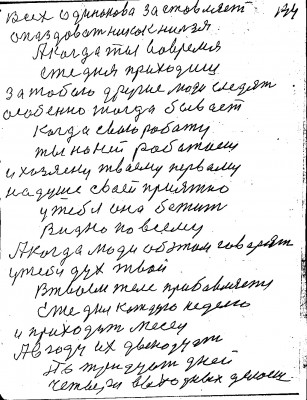 всех одинаково заставляет 134
опаздоват никак нилзя
А когда ты вовремя
Сте дня приходиш
За тобою другие люди следят
особенно тогда бывает
Когда свою работу
ты на ней работаеш
и хозяену твоему первому
на душе своей приятно
у тебя она бежит
Видно по всему
А когда люди об этом говорят
у тебя дух твой
В твоем теле прибавляется
Сте дни каждую неделю
и приходят месец
А в году их двенодцат
По тридцат дней
Четыри выходных